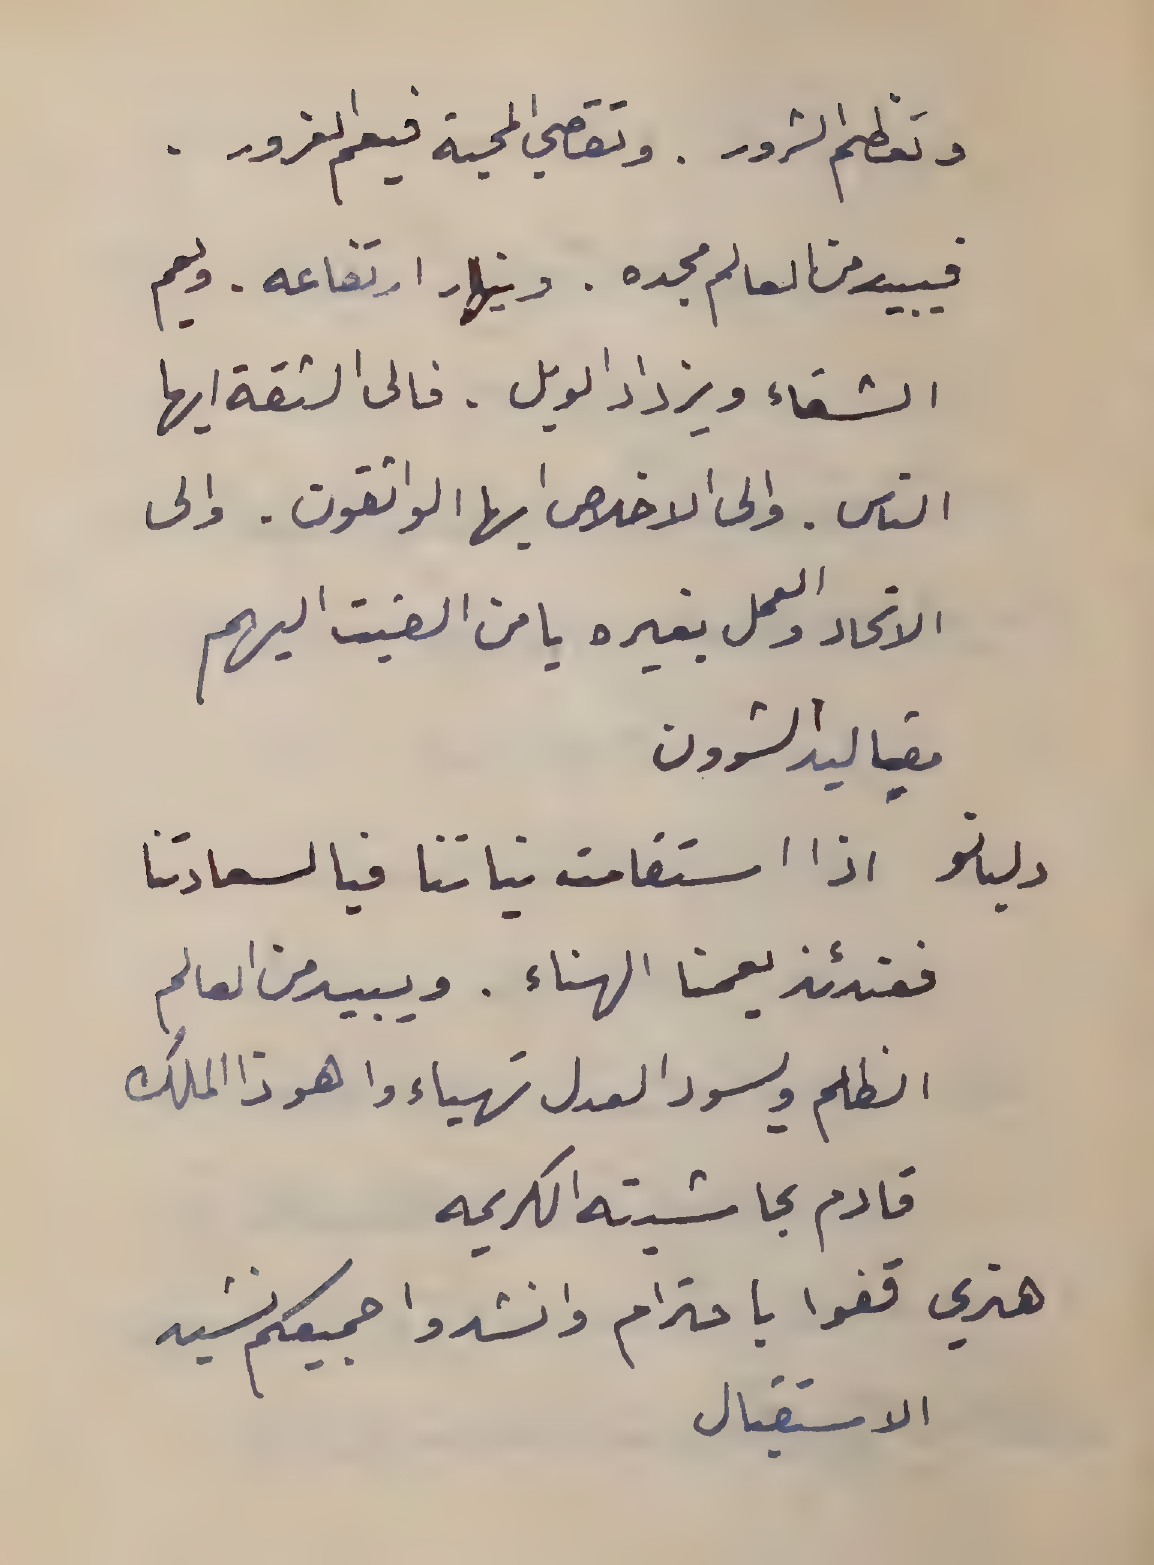 وتعظم الشرور . وتقصي المحبة فيعم الغرور .
فيبيد من العالم مجده . وينهار ارتفاعه . ويعم
الشقاء ويزداد الويل . فالى الثقة ايها
الناس . والى الاخلاص ايها الواثقون . والى
الاتحاد والعمل بغيره يا من القيت اليهم
مقاليد الشوون
دليانو اذا استقامت نياتنا فيا لسعادتنا
فعندئذ يعمنا الهناء . ويبيد من العالم
الظلم ويسود العدل تهياءوا هوذا الملك
قادم بحاشيته الكريمه
هنري قفوا باحترام وانشدوا جميعكم نشيد
الاستقبال